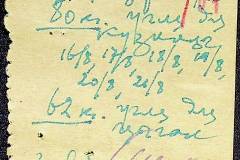 80 кг. угля для
кузницы
16/8, 17/8, 18/8, 19/8,
20/8, 21/8
62 к. угля для